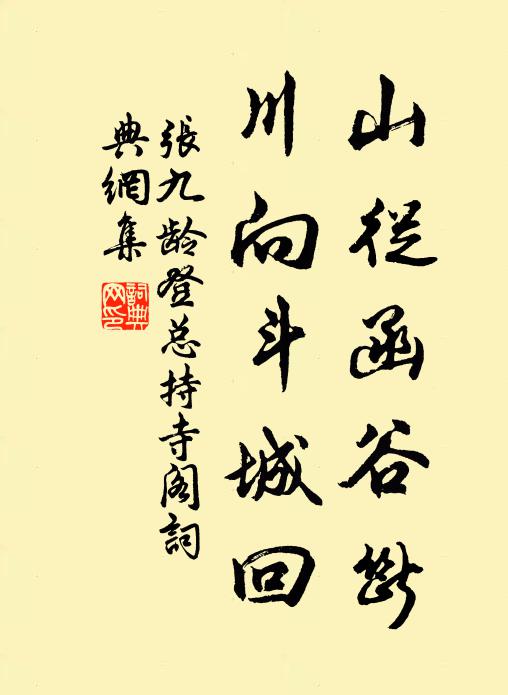 山從函谷斷
川向斗城回
張九龄登总持寺阁詞
典網集
詞典
网印